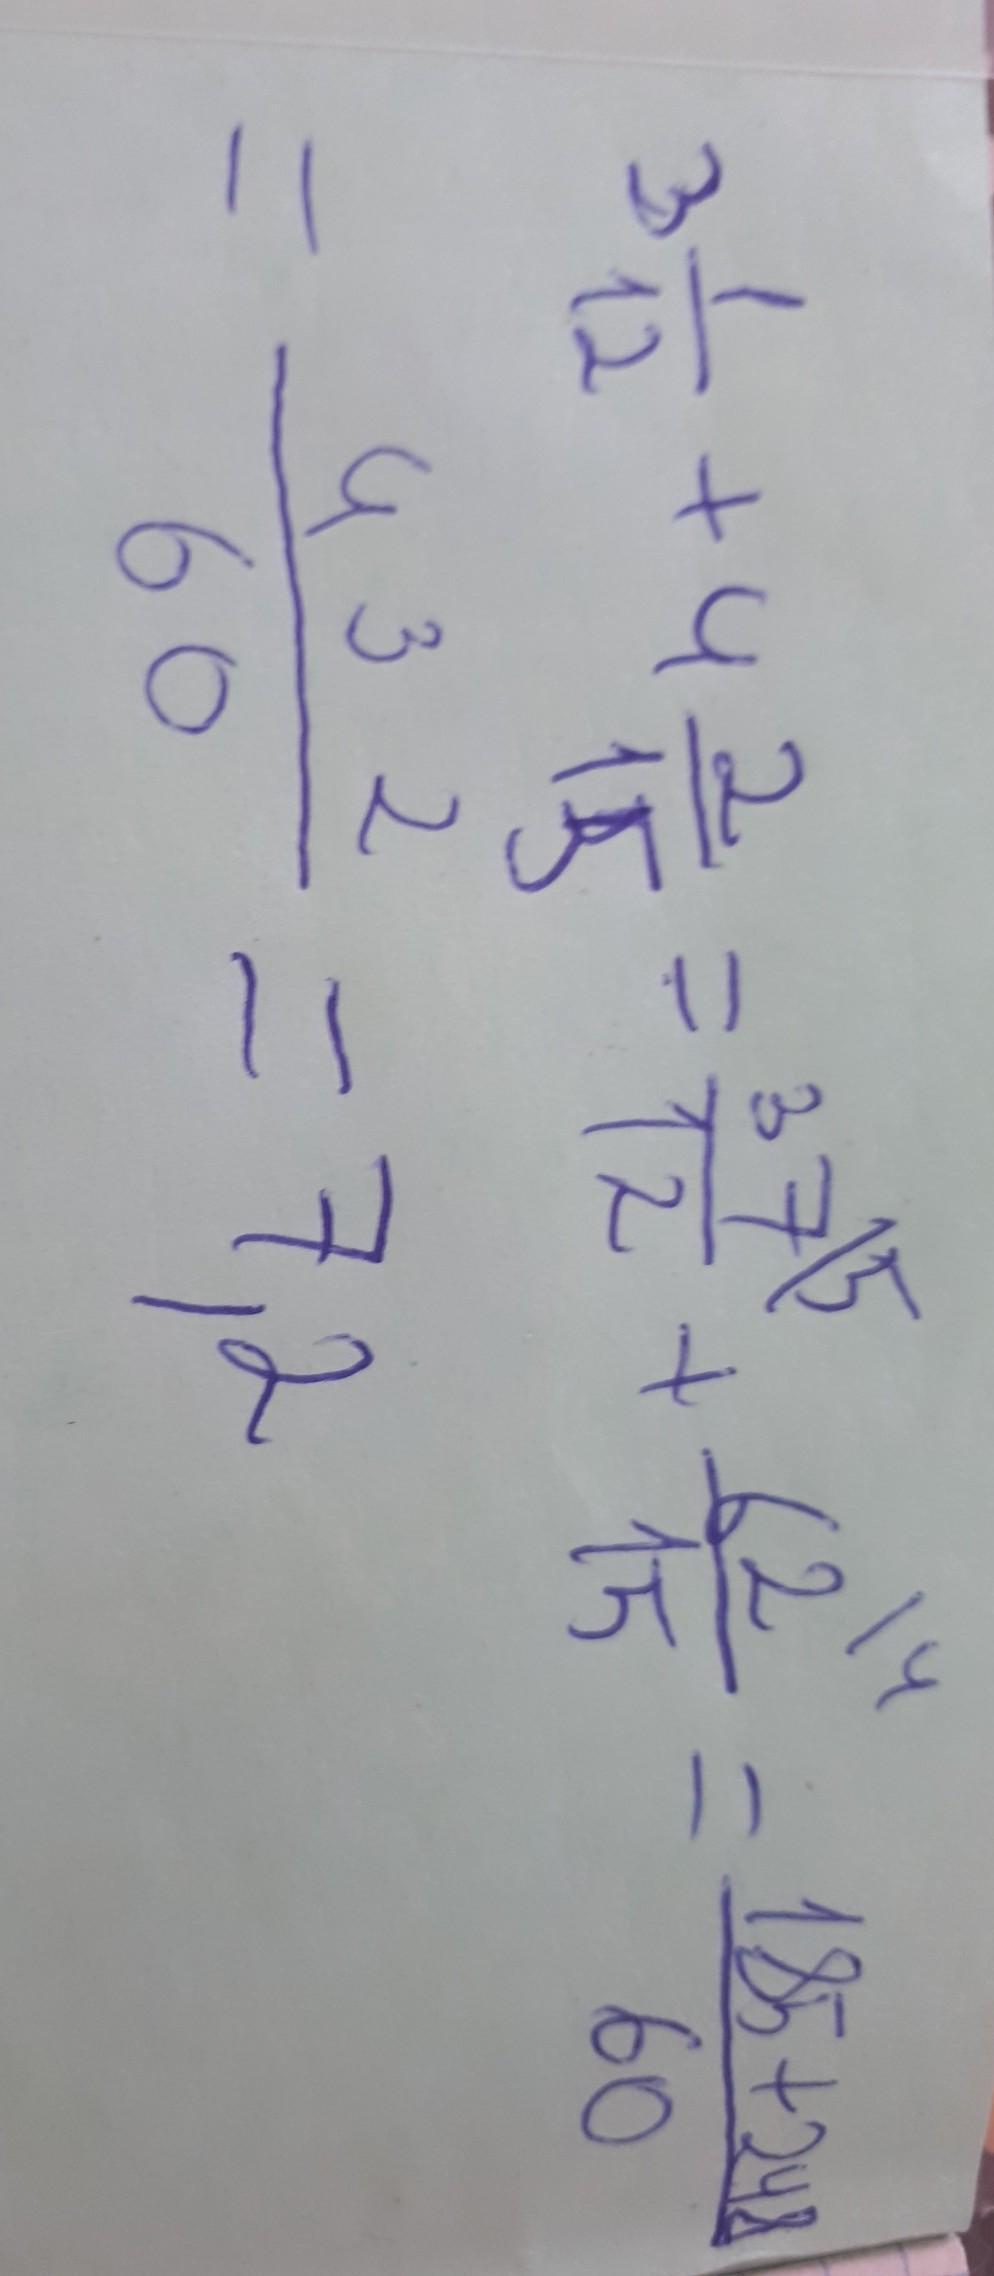 3 1/12 + 4 2/15 = 37\5/12 + 62\4/15 = 185+248/60
= 432/60 = 7,2